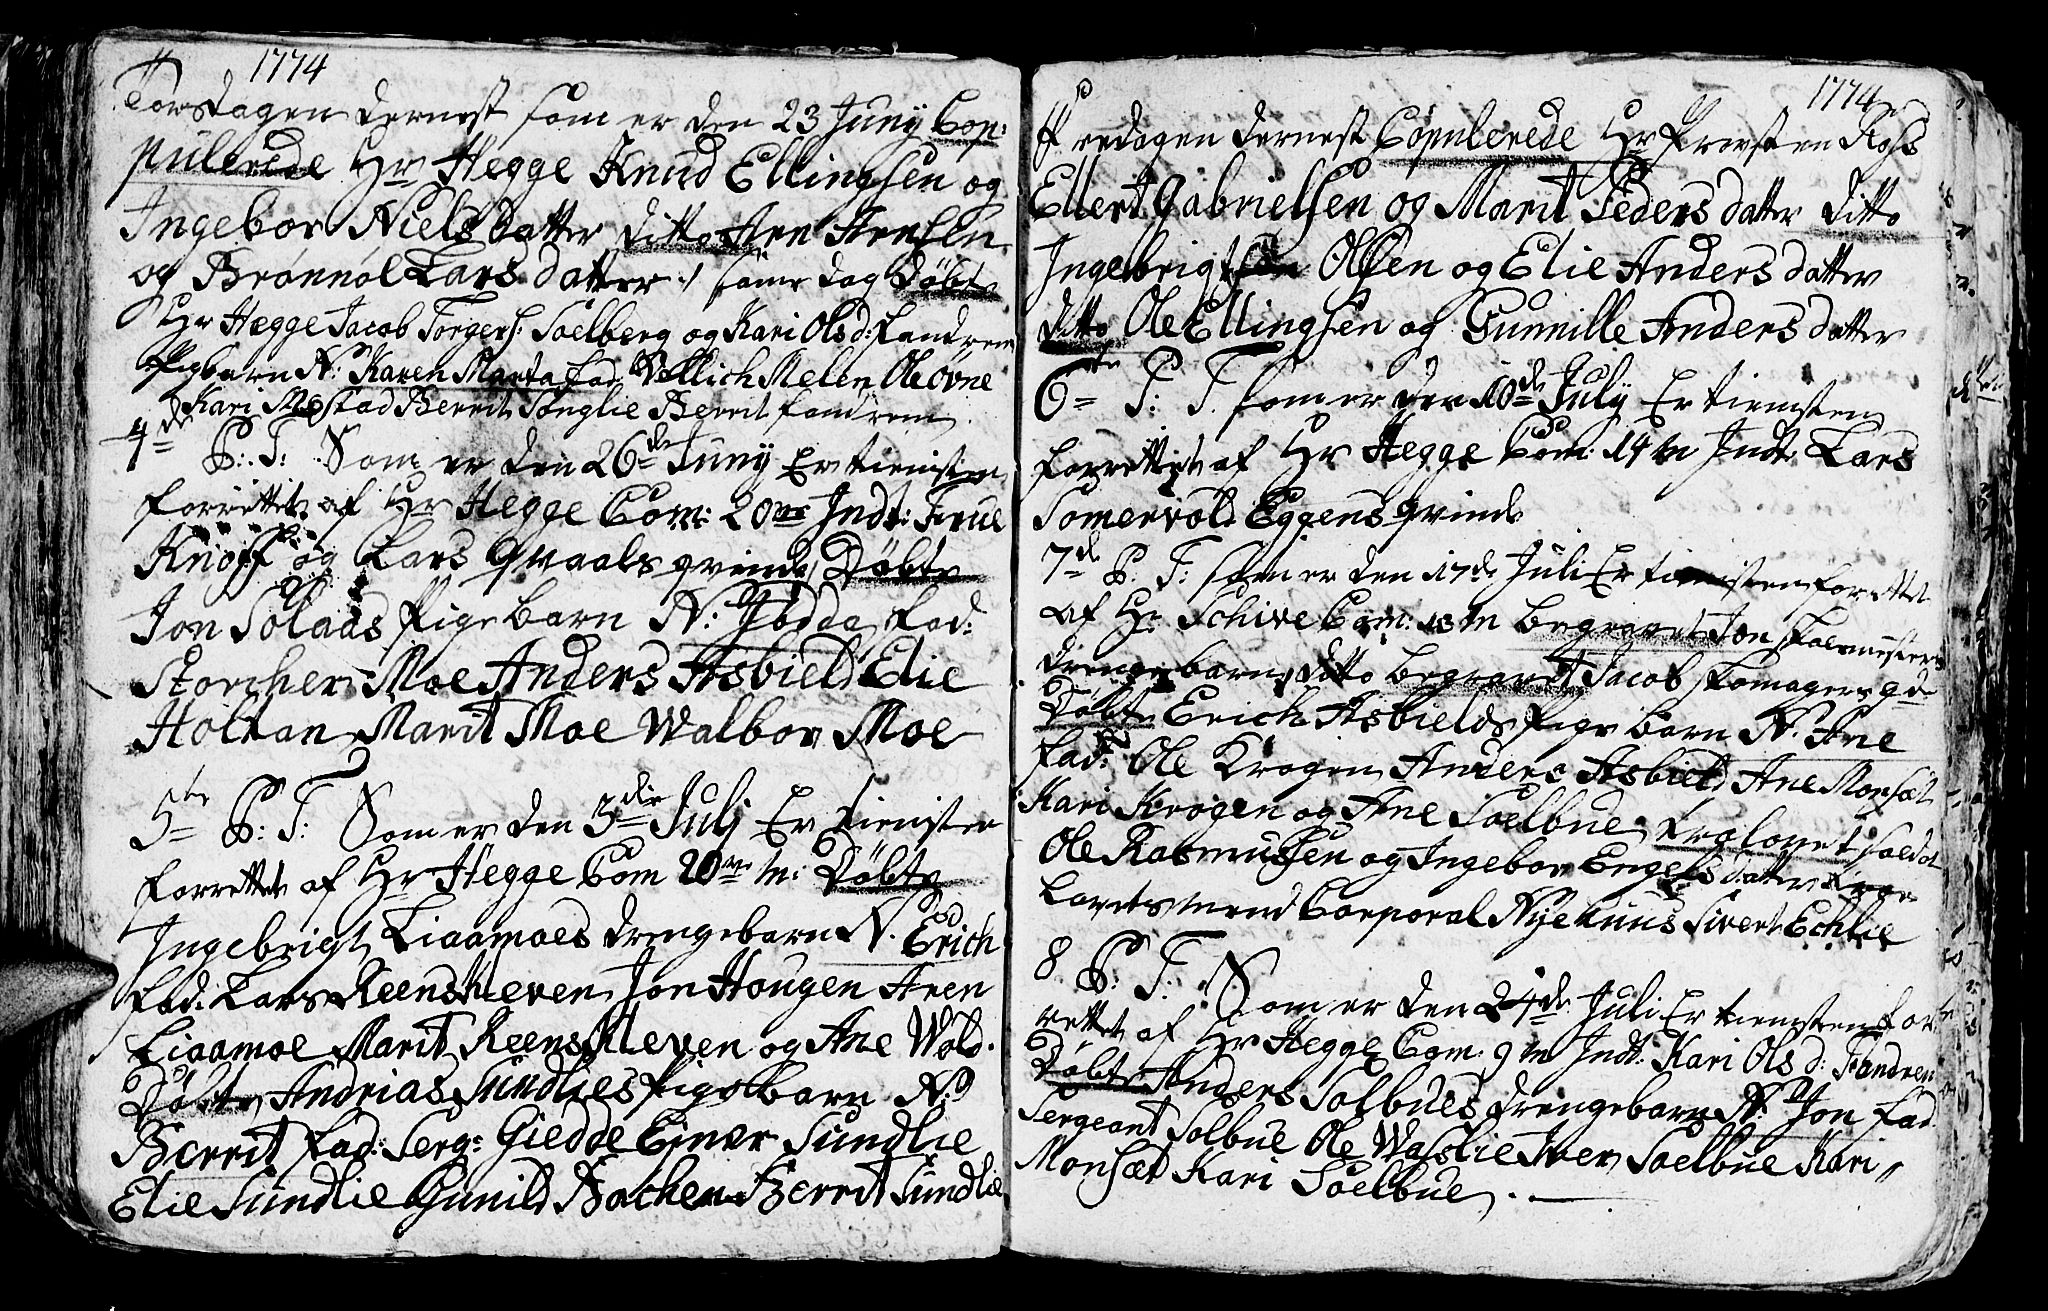 1774
Torsdagen dernest som er den 23 Juny Cop:
pulerede Hr Hegge Knud Ellingsen og
Ingebor Niels datter ditto Aren Arensen
og Brønnøl Lars datter / same dag Døbt
Hr Hegge Jacob Torgers: Soelberg og Kari Ols d: Fandrem
Pigbarn N: Karen Marta fad: Vellich Melen Ole Øvne
Kari Mostad Berrit Songlie Berrit fandrem
4de P: T: Som er den 26de Juny Er tienisten
forrettet af Hr Hegge Com: 20 m Indt: Frue
Knoff og Lars Qvaals qvinde Døbt
Jon Solaas Pigebarn N: Ibdda fad:
Storcher Moe Anders Asbield Elie
Holtan Marit Moe Walbor Moe
5te P: T: Som er den 3die Julj Er tienisten
forrettet af Hr Hegge Com 20 m: Døbt
Ingebrigt Liaamoes drengebarn N. Erich
fad: Lars Reenskleven Jon Hougen Aren
Liaamoe Marit Reenskleven og Ane Wold.
Døbt Andrias Sundlies Pigebarn N:
Berrit fad: Serg: Giedde Einer Sundlie
Elie Sundlie Gunild Bachen Berrit Sundlie
1774
Fredagen dernest Copulerede Hr Provsten Ross
Ellert Gabrielsen og Marit Peders datter ditto
Ingebrigt Olsen og Elie Anders datter
ditto Ole Ellingsen og Gunnille Anders datter
6te P: T. som er den 10de July Er tiennisten
forrettet af Hr Hegge Com: 14 m Indt: Lars
Somervold Eggens qvinde
7de P: T: som er den 17de Juli Er tienisten forettet
af Hr Schive Com: 13 m begravet Jon Skolemesters
drengebarn ditto begravet Jacob Skomagers qde
Døbt Erich Asbields Pige barn N. Ane
fad: Ole Krogen Anders Asbield Ane Monsæt
Kari Krogen og Ane Soelbue Trolovet soldat
Ole Rasmussen og Ingebor Engels datter
Lovesmend Corporal Nyehuus Sivert Echlie
8 P: T: Som er den 24de Juli Er tienisten for
rettet af Hr Hegge Com: 9 m Indt: Kari Ols d: Fandrem
Døbt Anders Solbues drengebarn N: Jon fad:
Sergeant Solbue Ole Waslie Iver Soelbue Kari
Monsæt Kari Soelbue